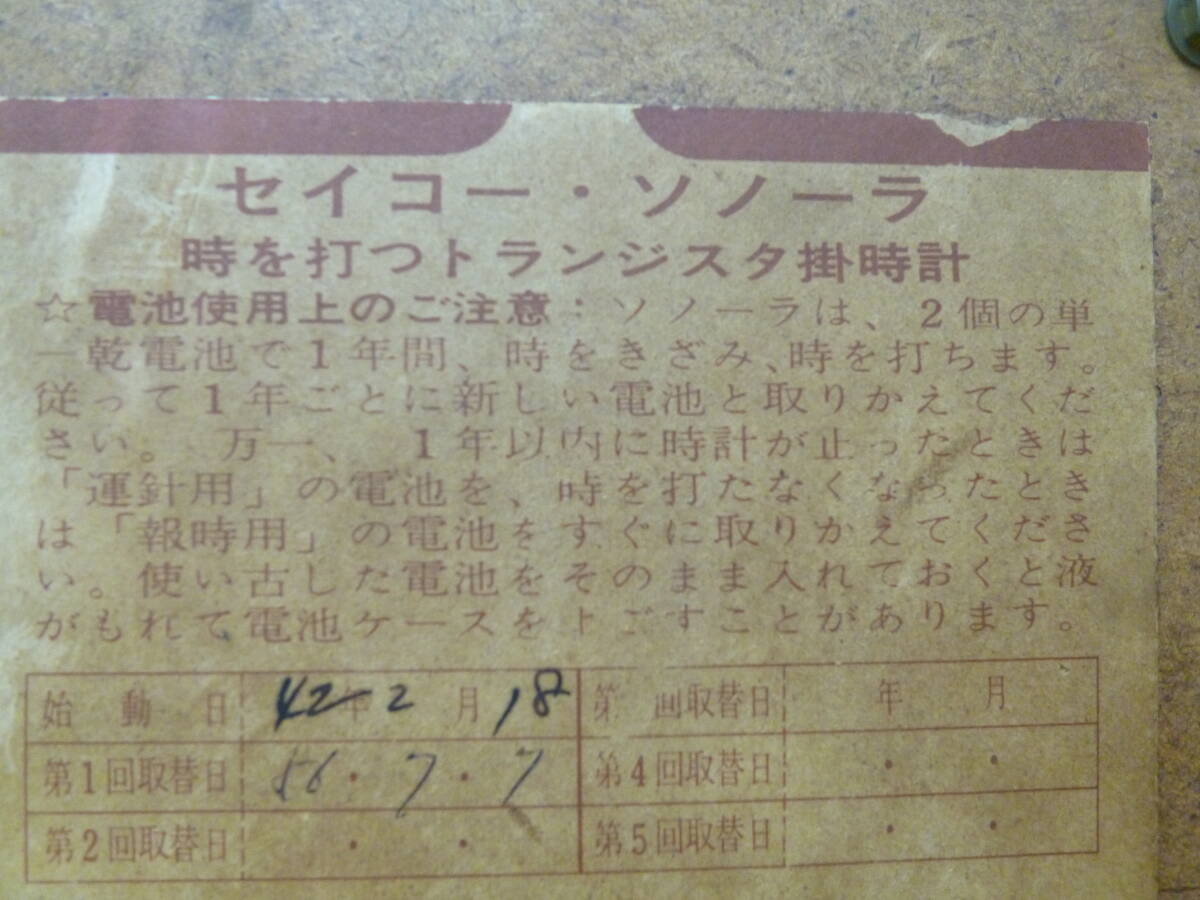 セイコー・ソノーラ
時を打つトランジスタ掛時計
☆電池使用上のご注意：ソノーラは、2個の単
一乾電池で1年間、時をきざみ、時を打ちます。
従って1年ごとに新しい電池と取りかえてくだ
さい。 万一、 1年以内に時計が止ったときは
「運針用」の電池を、時を打たなくなったとき
は「報時用」の電池をすぐに取りかえてくださ
い。使い古した電池をそのまま入れておくと液
がもれて電池ケースをよごすことがあります。
始動日 42年2月18 第 回取替日 年 月
第1回取替日 56・7・7 第4回取替日 ・ ・
第2回取替日 ・ ・ 第5回取替日 ・ ・